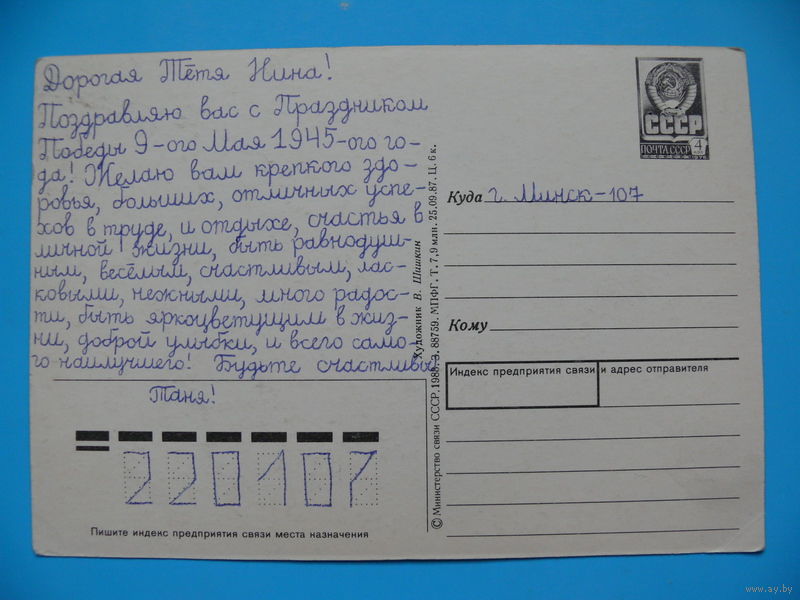 Дорогая Тётя Нина!
Поздравляю вас с Праздником
Победы 9-ого Мая 1945-ого го-
да! Желаю вам крепкого здо-
ровья, больших, отличных успе-
хов в труде, и отдыхе, счастья в
личной жизни, быть равнодуш-
ным, весёлым, счастливым, лас-
ковыми, нежными, много радос-
ти, быть яркоцветущим в жиз-
ни, доброй улыбки, и всего само-
го наилучшего! Будьте счастливы
Таня!
220107
Пишите индекс предприятия связи места назначения
© Министерство связи СССР, 1988. З. 88759. МПФГ. Т. 7,9 млн. 25.09.87. Ц. 6 к.
Художник В. Шишкин
СССР
ПОЧТА СССР 4
Куда г. Минск-107
Кому
Индекс предприятия связи и адрес отправителя
www.ay.by